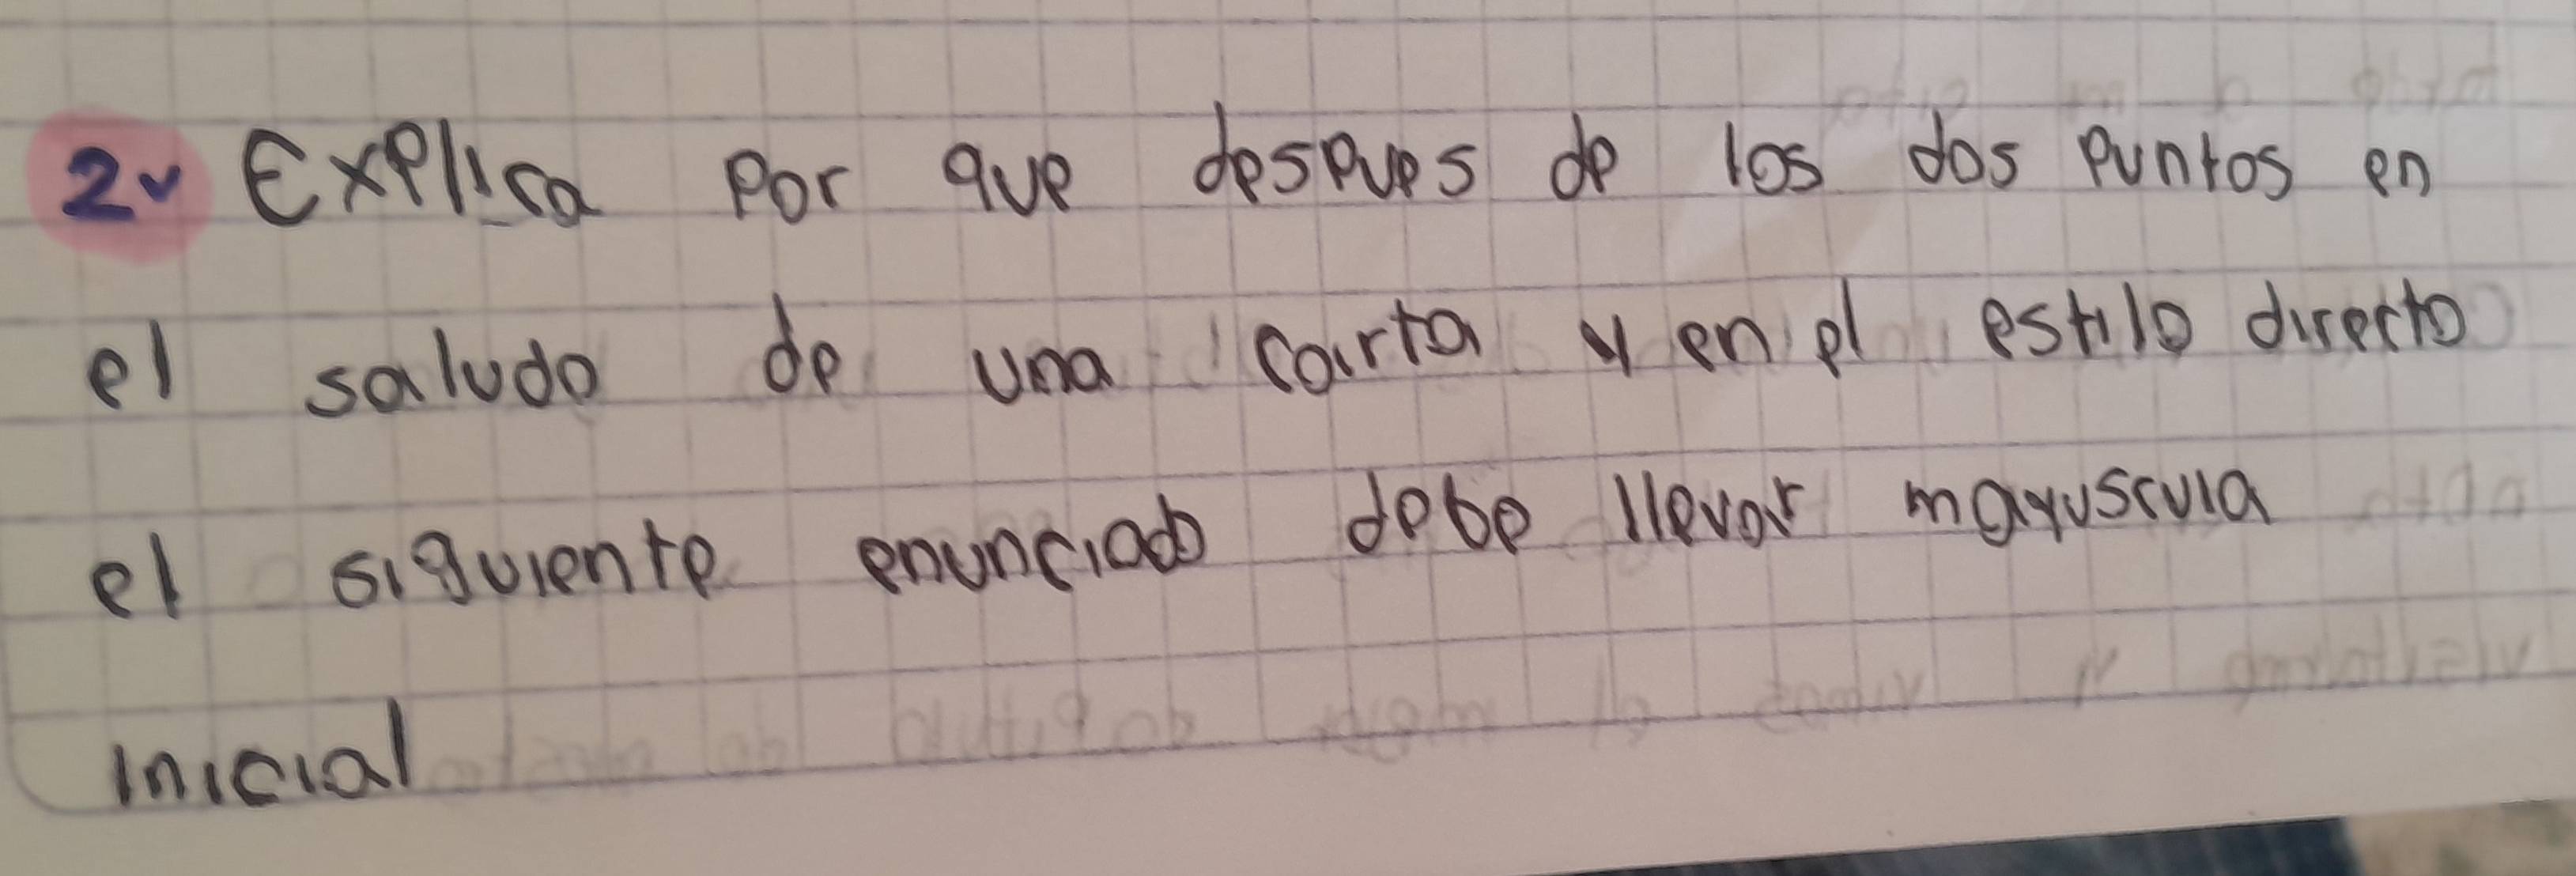 2. Explica por que despues de los dos puntos en
el saludo de una carta y en el estilo directo
el siguiente enunciado debe llevar mayuscula
inicial